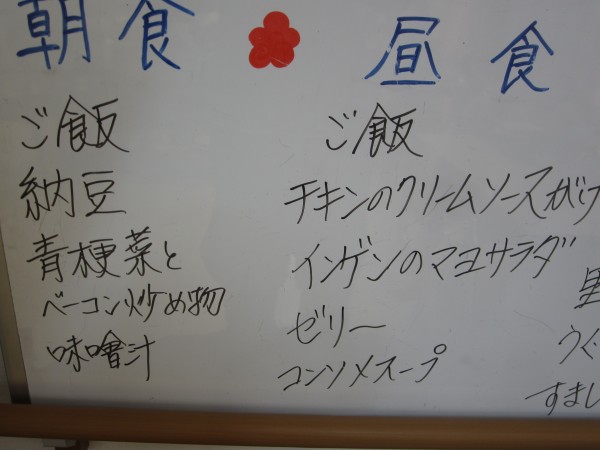 朝食
ご飯
納豆
青梗菜と
ベーコン炒め物
味噌汁
昼食
ご飯
チキンのクリームソースがけ
インゲンのマヨサラダ
ゼリー
コンソメスープ
うぐ
すまし